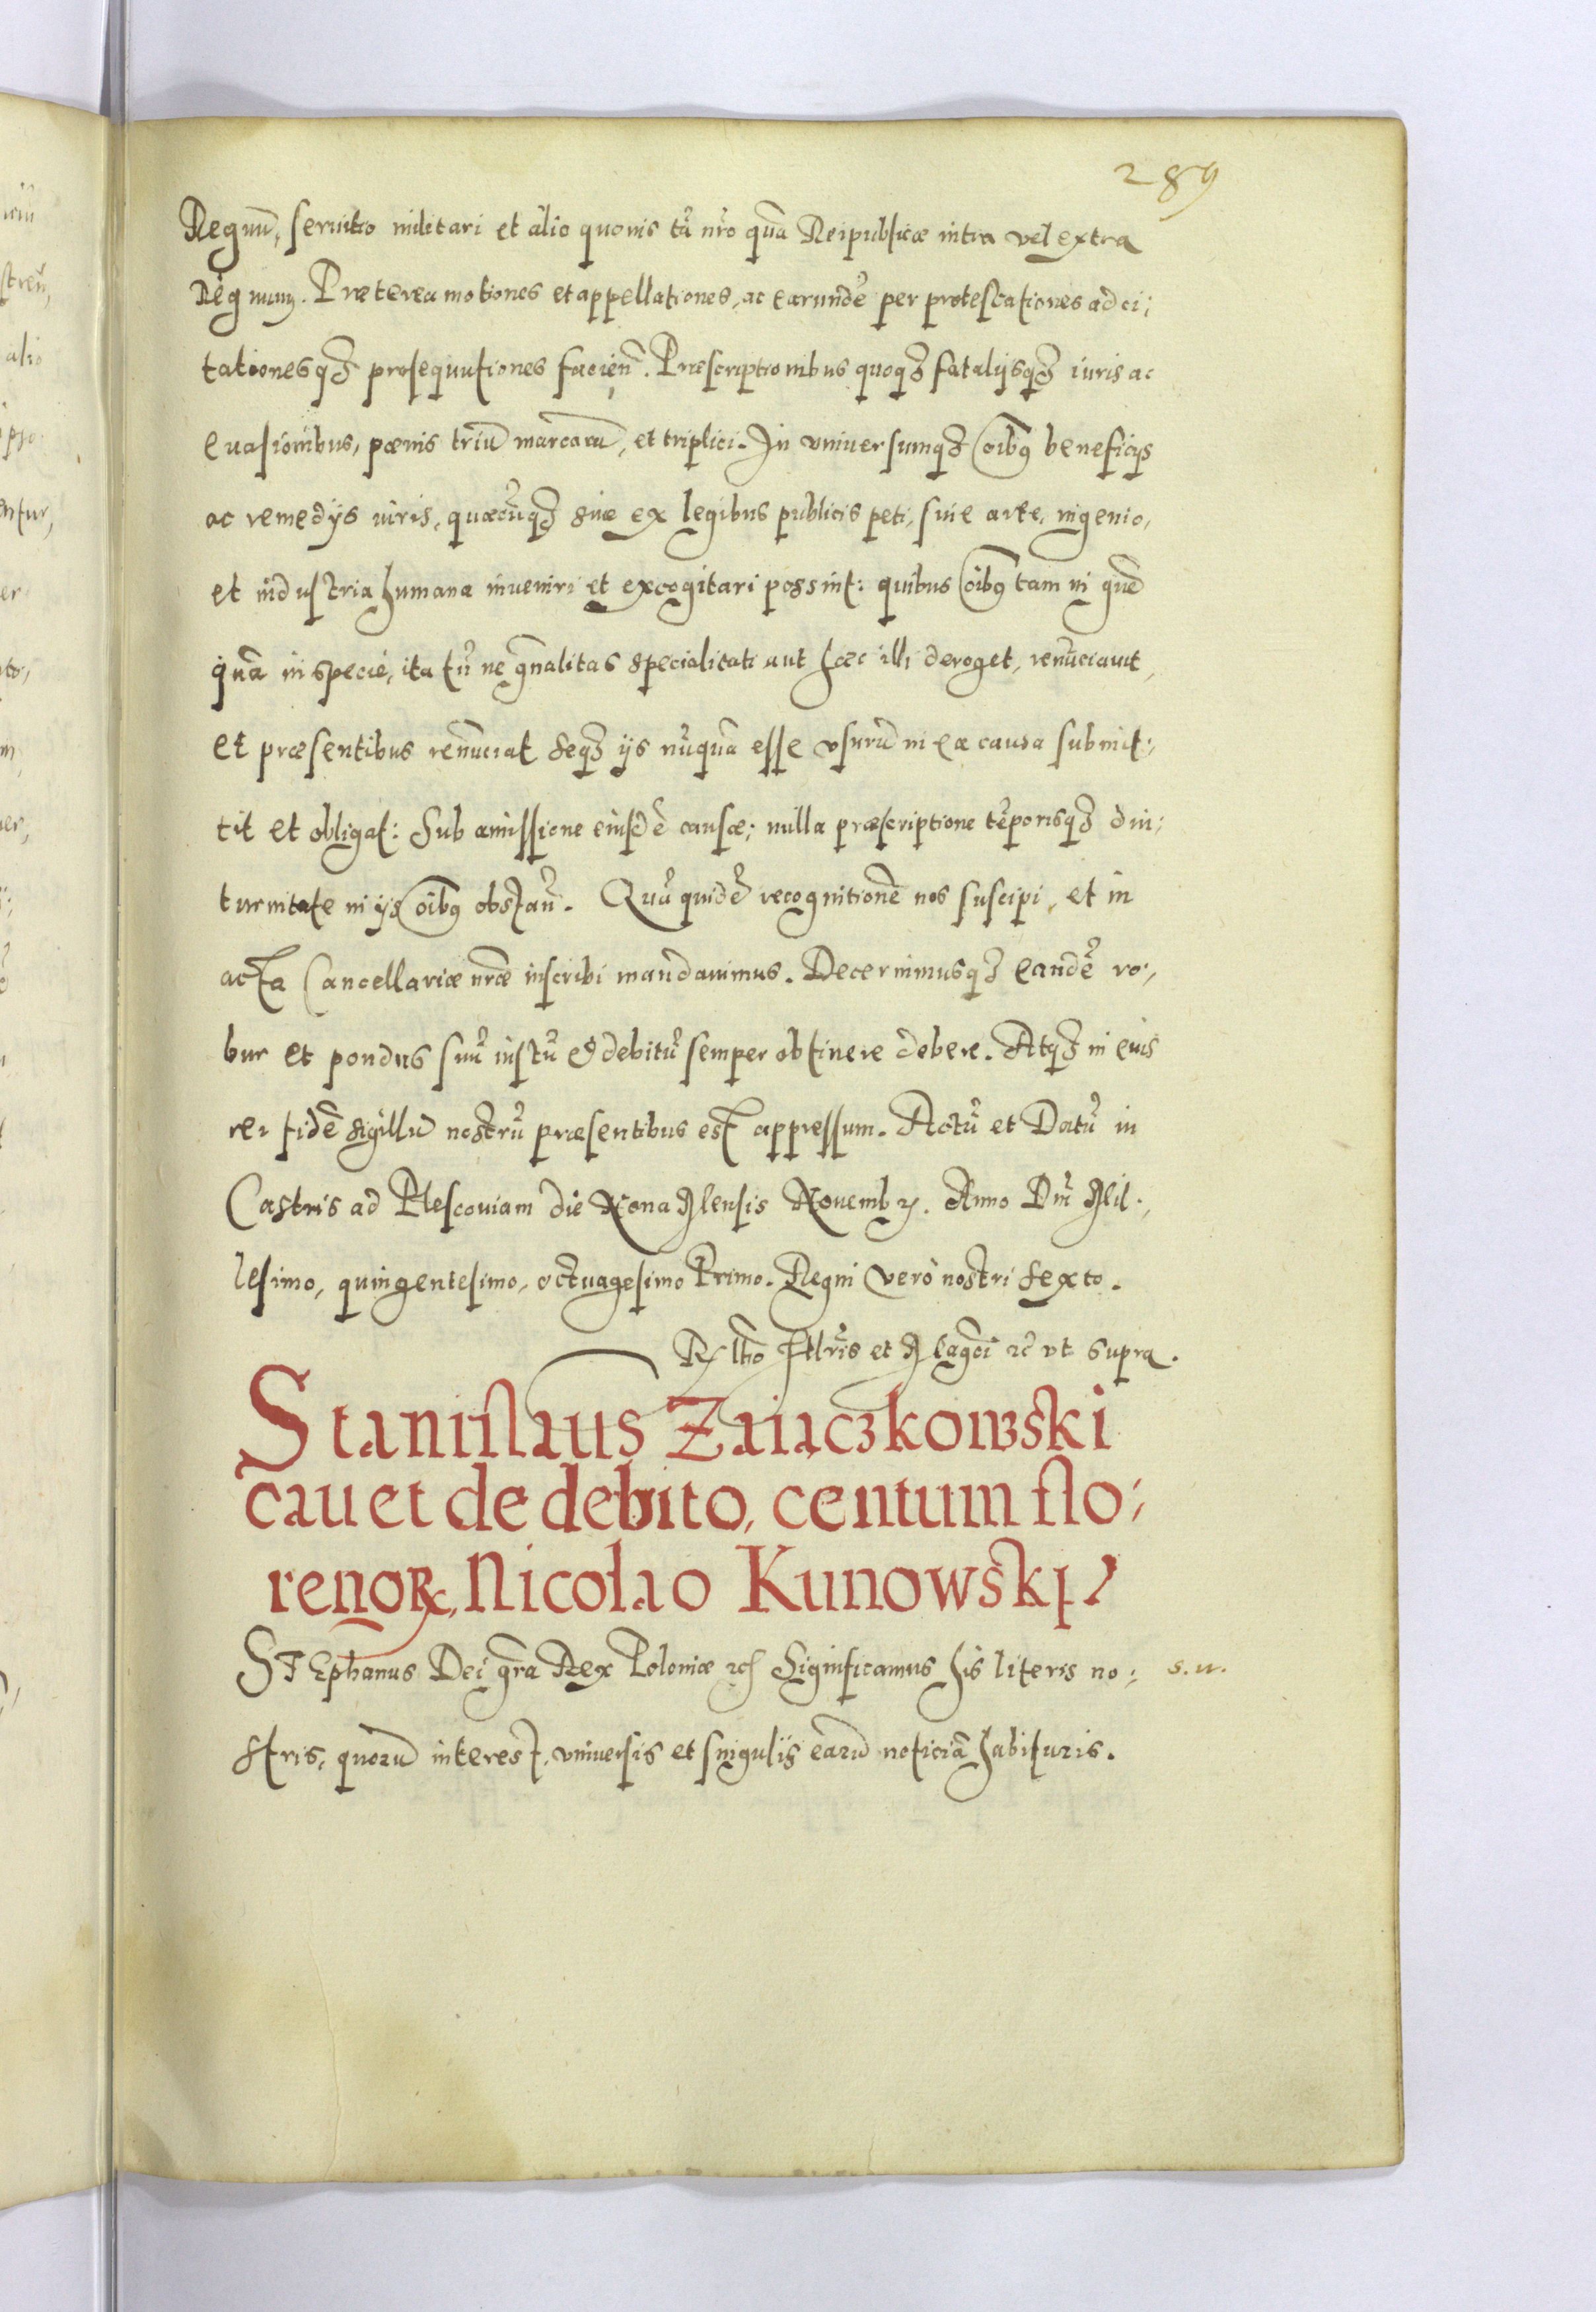 289
Regnũ, seruitio militari et alio quouis tã nr̃o quã Reipublicæ intra vel extra
Regnum. Præterea motiones et appellationes, ac earundẽ per protestationes ad ci;
tationesq3 prosequutiones facien̄. Præscriptionibus quoq3 fatalijsq3 iuris ac
euasionibus, pœnis triũ marcarũ, et triplici. In vniuersumq3 oĩbꝰ beneficijs
ac remedijs iuris, quæcũq3 siue ex legibus publicis peti, siue arte, ingenio,
et industria humana inueniri et excogitari possint: quibus oĩbꝰ tam in gñe
quã in specie, ita tñ ne gñalitas specialitati aut hæc illi deroget, renũciauit,
et præsentibus renũciat seq3 ijs nũquã esse vsurũ in ea causa submit;
tit et obligat: Sub amissione eiusdẽ causæ; nulla præscriptione tẽporisq3 diu;
turnitate in ijs oĩbꝰ obstan̄. Quã quidẽ recognitionẽ nos suscipi, et in
acta Cancellariæ nr̃æ inscribi mandauimus. Decernimusq3 eandẽ ro;
bur et pondus suũ iustũ & debitũ semper obtinere debere. Atq3 in eius
rei fidẽ sigillũ nostrũ præsentibus est appressum. Actũ et Datũ in
Castris ad Plescouiam die Nona Mensis Nouembꝝ. Anno Dñi Mil;
lesimo, quingentesimo, octuagesimo Primo. Regni vero nostri sexto.
Rꝭ Illr̃is et Magci ꝛc vt supra.
Stanislaus Zaiączkowski
cauet de debito, centum flo;
renoꝝ, Nicolao Kunowski.
STEphanus Dei grã Rex Poloniæ ꝛc Significamus his literis no; s. n.
stris, quorũ interest, vniuersis et singulis earũ noticiã habituris.